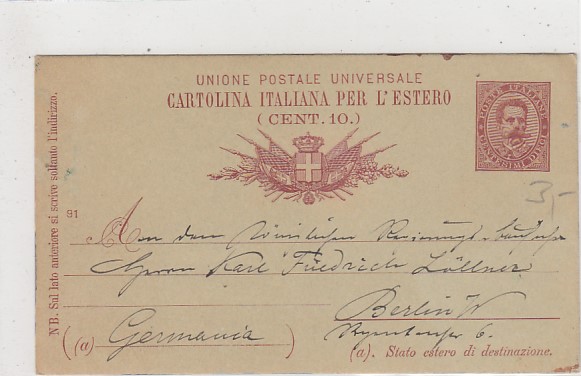 UNIONE POSTALE UNIVERSALE
CARTOLINA ITALIANA PER L'ESTERO
(CENT. 10.)
POSTE ITALIANE
CENTESIMI DIECI
3,-
91
NB. Sul lato anteriore si scrive soltanto l'indirizzo.
An den Königlichen Regierungs-
Herrn Karl Friedrich Zöllner
Berlin W
6.
(a) Germania
(a). Stato estero di destinazione.